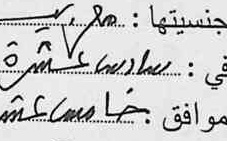 جنسيتها :
في : سادس عشرة
موافق : خامس عشر